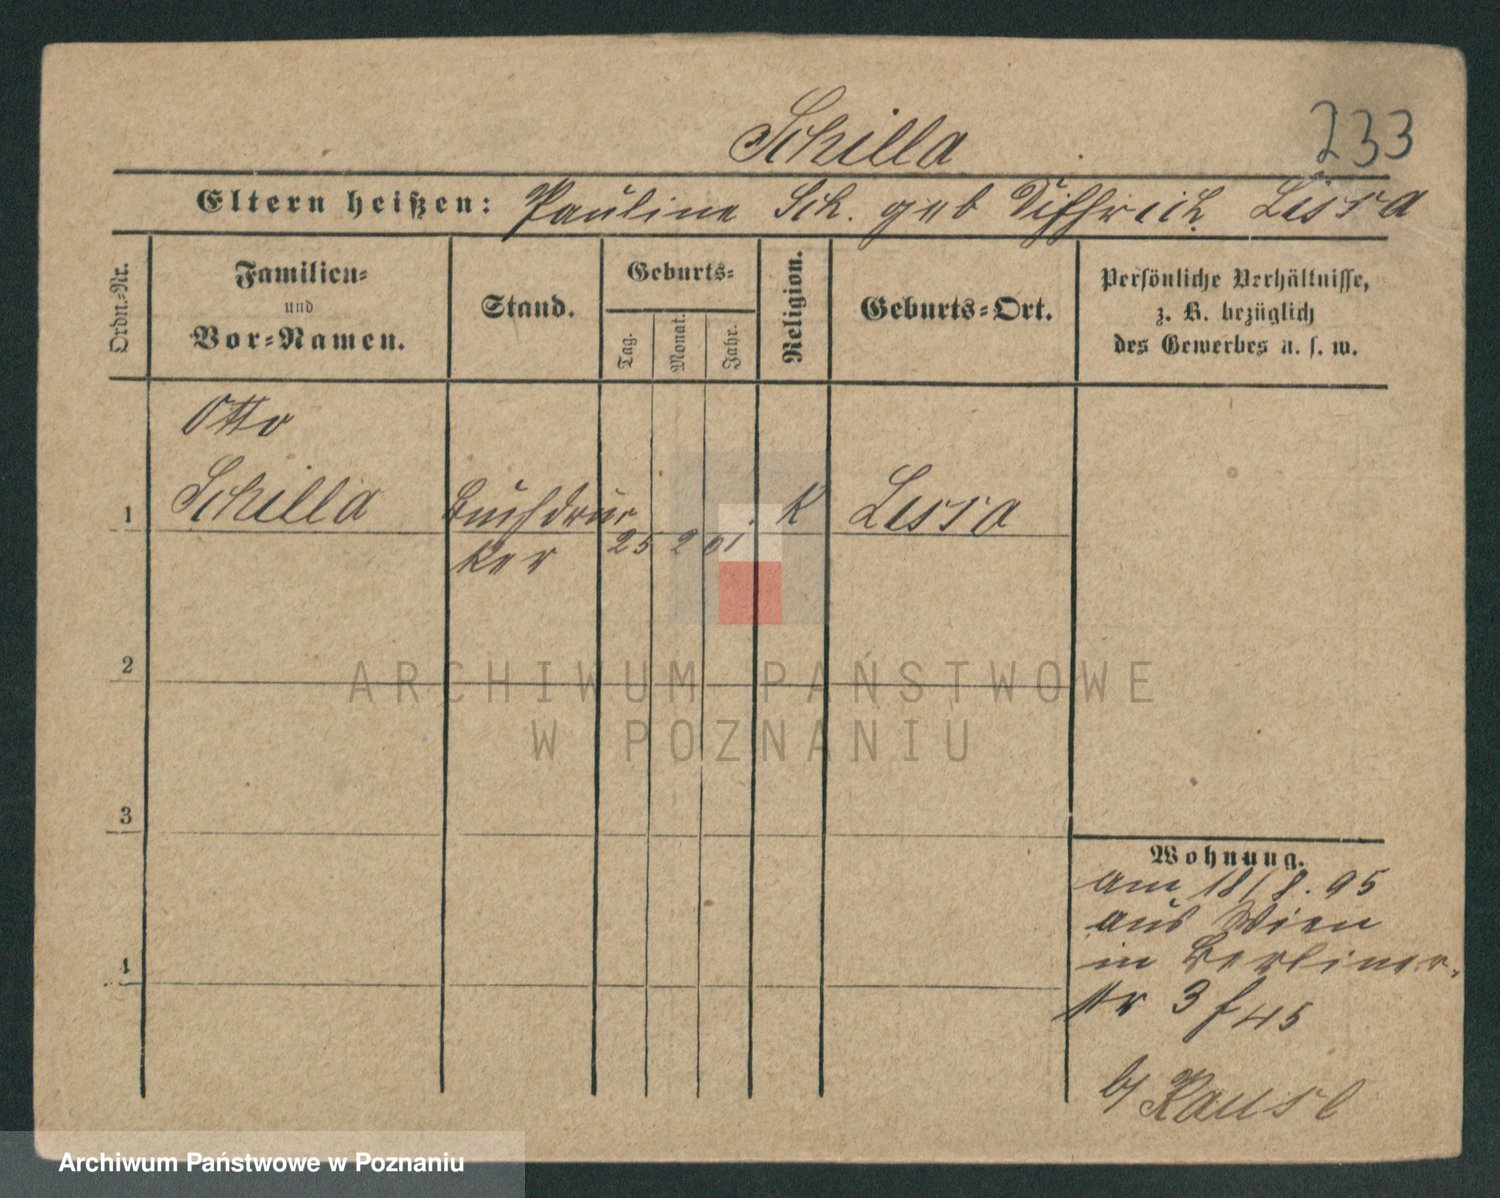 Schilla
233
Eltern heißen: Pauline Sch. geb Lissa
Ordn.-Nr.
Familien-
und
Vor-Namen.
Stand.
Geburts-
Tag.
Monat.
Jahr.
Religion.
Geburts-Ort.
Persönliche Verhältnisse,
z. B. bezüglich
des Gewerbes u. s. w.
Otto
1 Schilla Buchdruc K Lissa
ker 25 2 61
2
3
4
Wohnung.
am 18/8. 95
aus Wien
in Berliner-
str 3 f 45
b/
ARCHIWUM PAŃSTWOWE
W POZNANIU
Archiwum Państwowe w Poznaniu